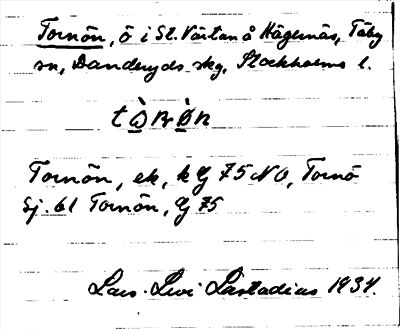 Tornön, ö i St. Värtan å Hägernäs, Täby
sn, Danderyds skg, Stockholms l.
Tornön, ek, kG 75 NO, Tornö
Sj. 61 Tornön, G 75
Lars-Levi Læstadius 1934.